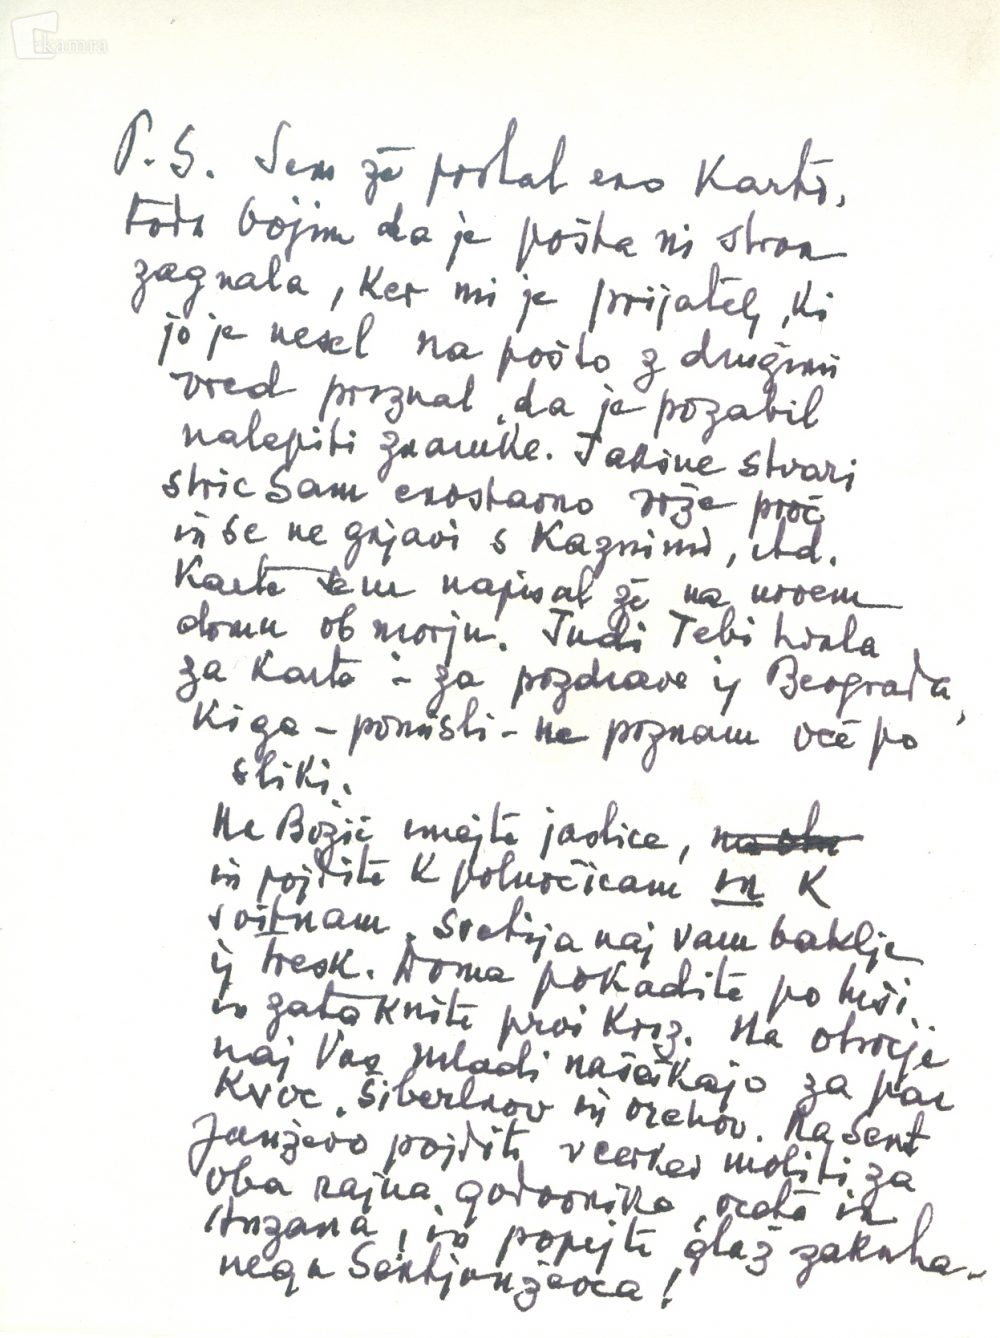 kamra
P.S. Sem že poslal eno karto,
toda bojim da je pošta ni stran
zagnala, ker mi je prijatelj, ki
jo je nesel na pošto z drugimi
vred priznal, da je pozabil
nalepiti znamke. Takšne stvari
stric Sam enostavno vrže proč
in se ne gnjavi s kaznimi, itd.
Karto sem napisal že na novem
domu ob morju. Tudi Tebi hvala
za karto i- za pozdrave iz Beograda,
ki ga - pomisli - ne poznam več po
sliki.
Na Božič imejte jaslice,
in pojdite k polnočicam in k
svitnam. Svetija naj vam baklje
iz tresk. Doma pokadite po hiši
in zataknite prvi križ. Na otročje
naj Vas mladi našeškajo za par
kvoc, šiberlnov in orehov. Na Šent
Janževo pojdite v cerkev moliti za
oba rajna godovnika, očeta in
Anzana, in popejte glaž zakuha-
nega Šentjanževca!